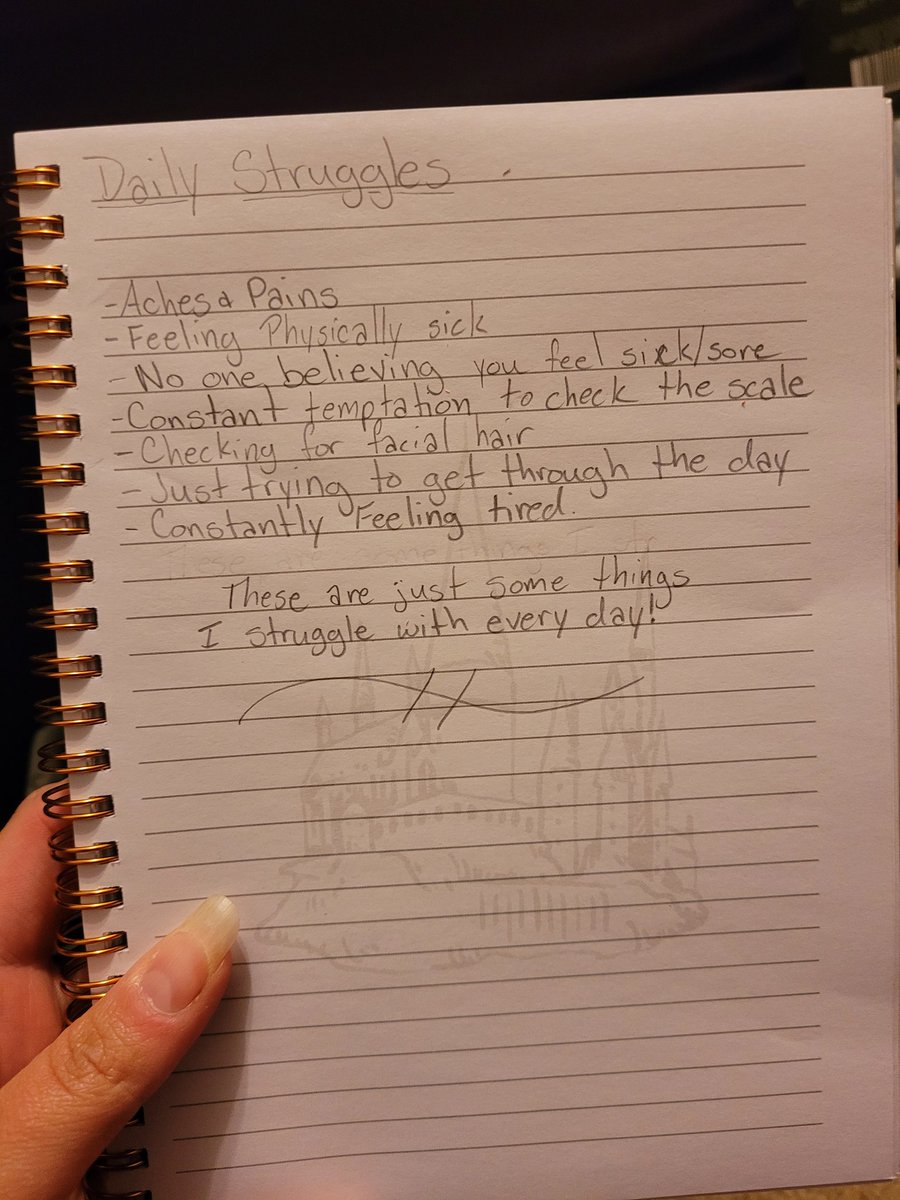 Daily Struggles
-Aches & Pains
-Feeling Physically sick
-No one believing you feel sick/sore
-Constant temptation to check the scale
-Checking for facial hair
-Just trying to get through the day
-Constantly Feeling tired.
These are just some things
I struggle with every day!